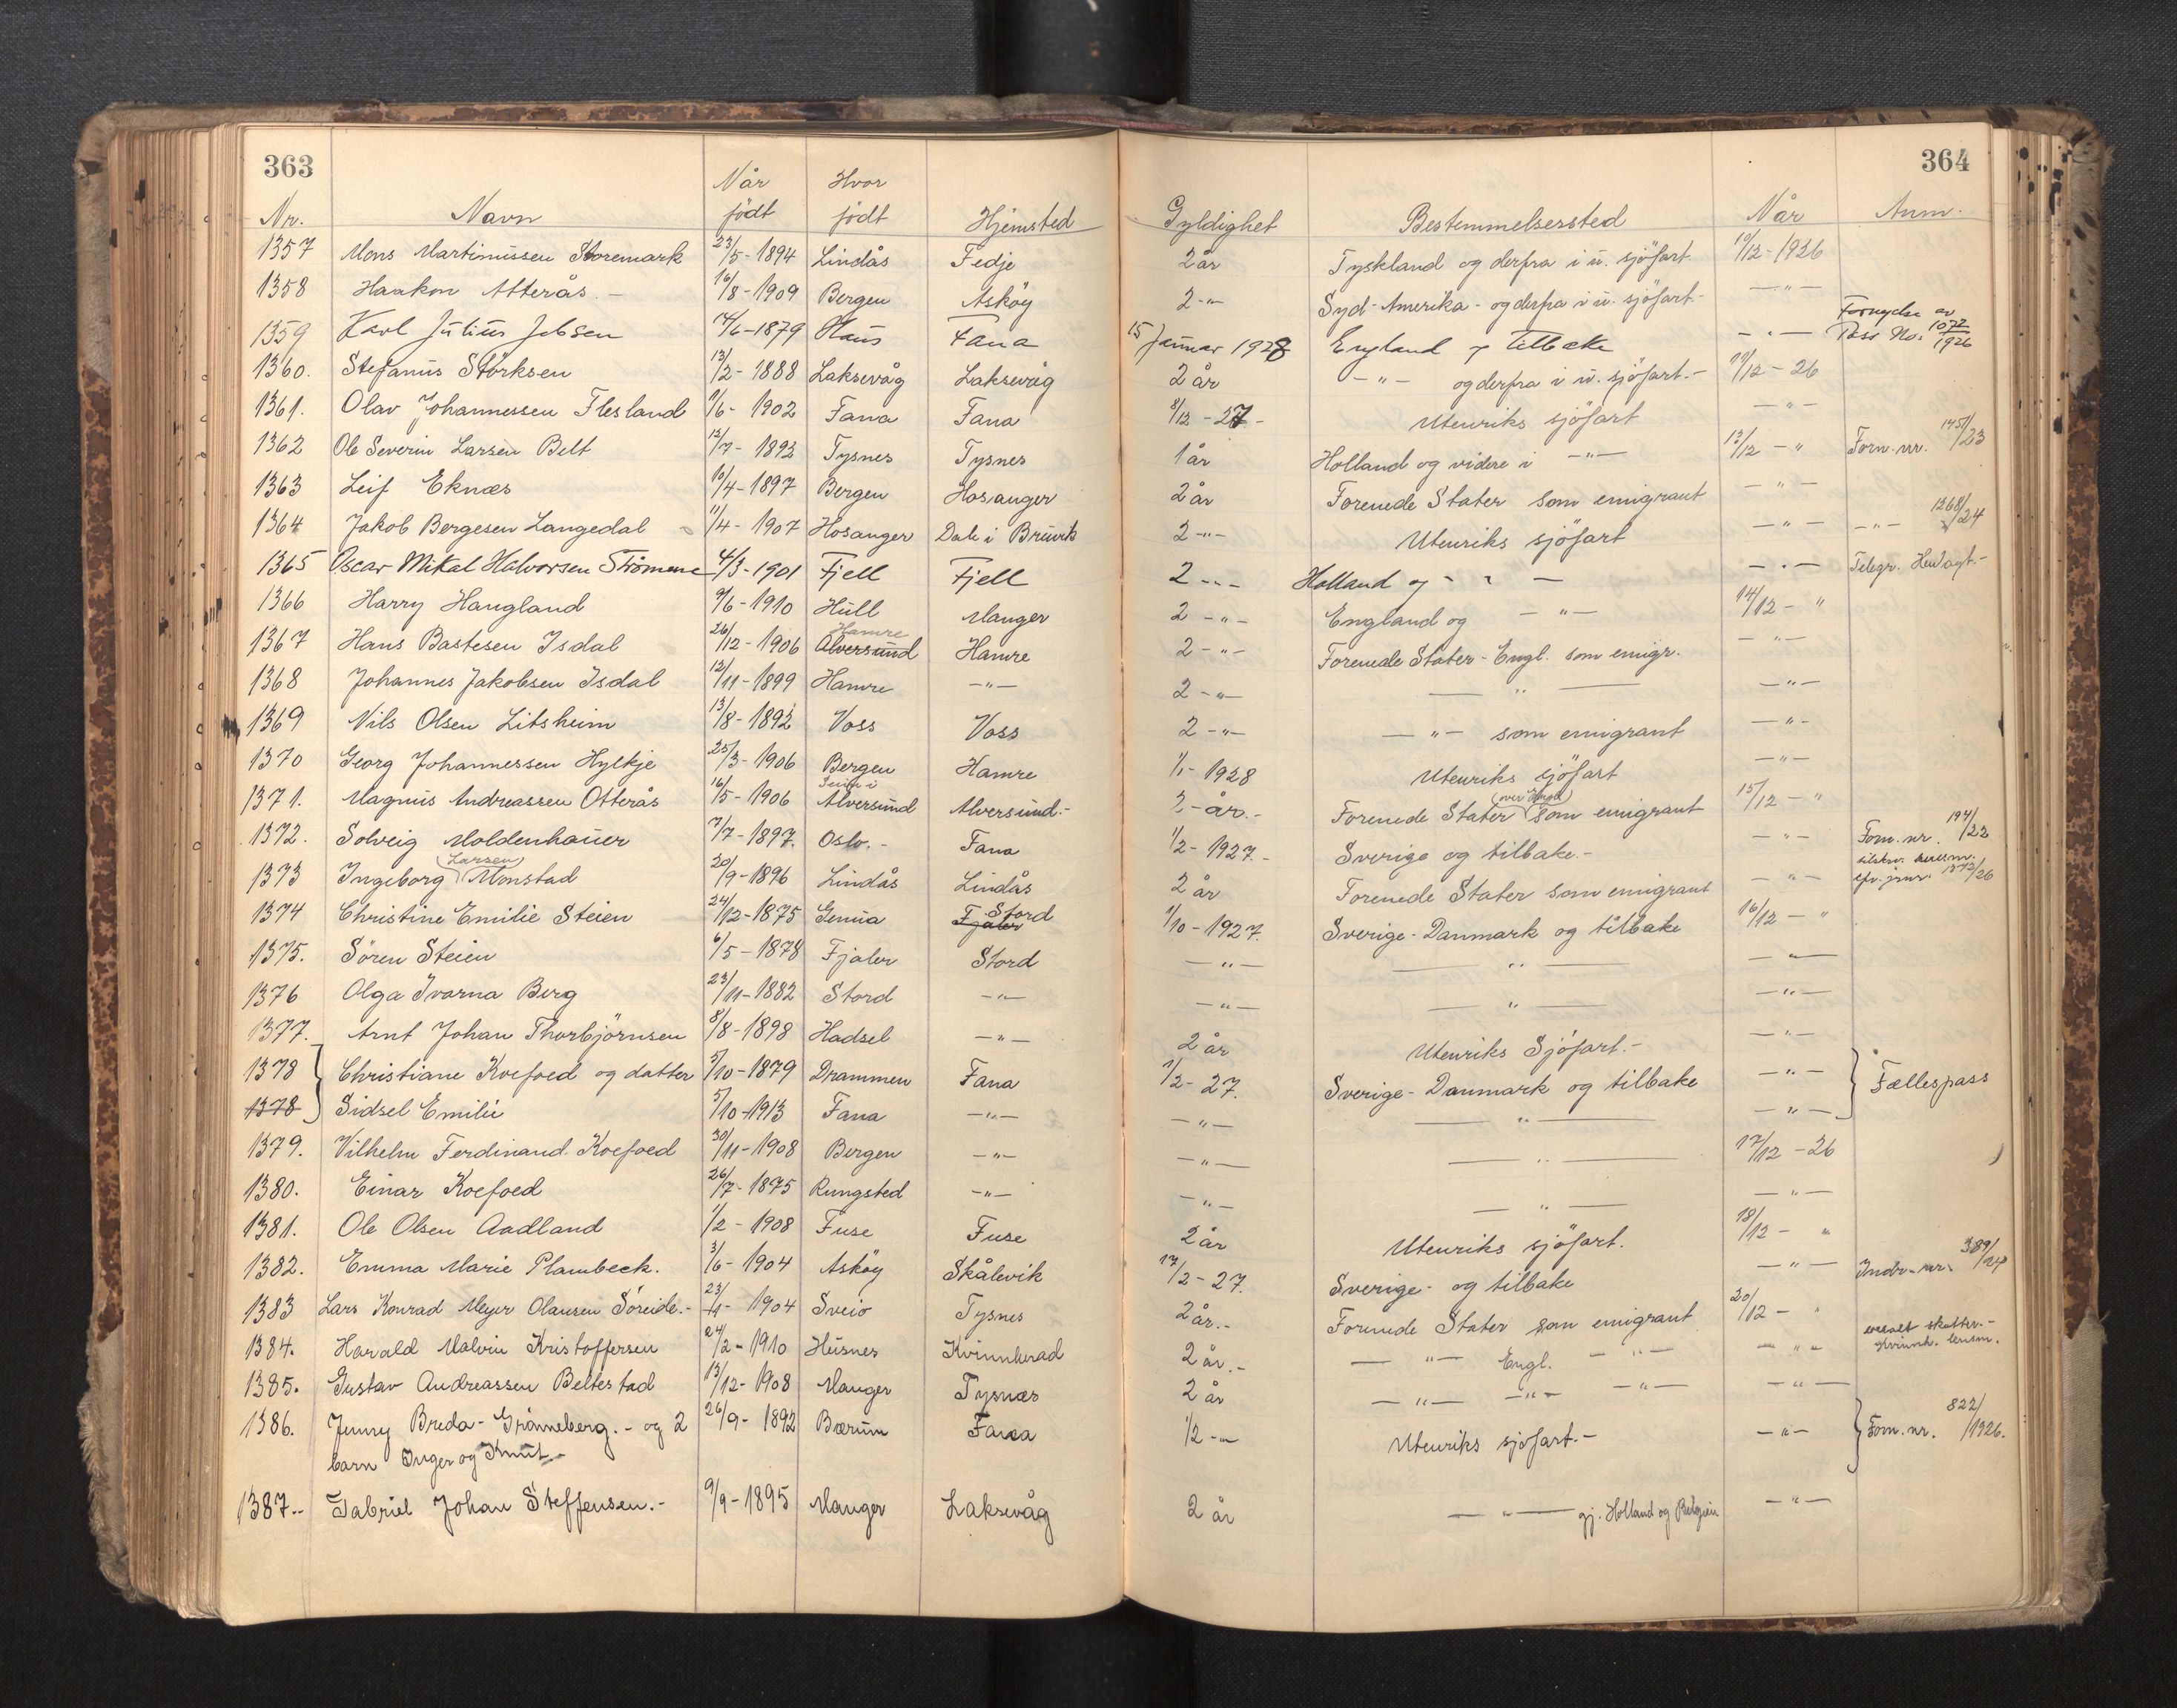 363
364
Når Hvor
Nr. Navn födt födt Hjemsted Gyldighet Bestemmelsersted Når Anm.
1357 Mons Martinussen Storemark 23/5-1894 Lindås Fedje 2 år Tyskland og derfra i u. sjöfart. 10/12-1926
1358 Haakon Atterås.- 16/8-1909 Bergen Asköy 2-"- Syd-Amerika-og derfra i u. sjöfart.- -"-
1359 Karl Julius Jebsen 14/6-1879 Haus Fana 15 Januar 1928 England og tilbake -"- Fornyelse av Pass No. 1072/1926
1360. Stefanus Storksen 13/2-1888 Laksevåg Laksevåg 2 år -"- og derfra i u. sjöfart.- 11/12-26
1361. Olav Johannessen Flesland 11/6-1902 Fana Fana 8/12-27- Utenriks sjöfart -"-
1362 Ole Severin Larsen Belt 12/7-1893 Tysnes Tysnes 1 år Holland og videre i -"- 13/12-" Forn. nr. 1751/23
1363 Leif Eknæs 10/4-1897 Bergen Hosanger 2 år Forenede Stater som emigrant -"-
1364 Jakob Bergesen Langedal 11/4-1907 Hosanger Dale i Bruvik 2-"- Utenriks sjöfart -"- -"- 1268/24
1365 Oscar Mikal Halvorsen Strömene 4/3-1901 Fjell Fjell 2-"- Holland og -"- -"- Telegr. Hen
1366 Harry Haugland 9/6-1910 Hull Manger 2-"- England og -"- 14/12-"
1367 Hans Bastesen Isdal 26/12-1906 Hamre Alversund Hamre 2-"- Forenede Stater-Engl. som emigr. -"-
1368 Johannes Jakobsen Isdal 12/11-1899 Hamre -"- 2-"- -"- -"-
1369 Nils Olsen Litsheim 13/8-1892 Voss Voss 2-"- -"- som emigrant -"-
1370 Georg Johannessen Hylkje 25/3-1906 Bergen Hamre 1/1-1928 Utenriks sjöfart -"-
1371. Magnus Andreassen Otterås 16/5-1906 Seim i Alversund Alversund.- 2-år.- Forenede Stater (over Engl) som emigrant 15/12-"
1372. Solveig Moldenhauer 7/7-1897. Oslo.- Fana 1/2-1927.- Sverige og tilbake.- -"- Forn. nr. 194/22
1373 Ingeborg (Larsen) Monstad 20/9-1896 Lindås Lindås 2 år Forenede Stater som emigrant -"- 1372/26
1374 Christine Emilie Steien 24/12-1875 Genua Fjaler Stord 1/10-1927. Sverige-Danmark og tilbake 16/12-"
1375. Sören Steien 6/5-1878 Fjaler Stord -"- -"- -"-
1376 Olga Ivarna Berg 23/11-1882 Stord -"- -"- -"- -"-
1377. Arnt Johan Thorbjörnsen 8/8-1898 Hadsel -"- 2 år Utenriks Sjöfart.- -"-
1378 Christiane Koefoed og datter 5/10-1879 Drammen Fana 1/2-27. Sverige-Danmark og tilbake -"- Fællespass
1378 Sidsel Emilie 5/10-1913 Fana -"- -"- -"- -"-
1379. Vilhelm Ferdinand Koefoed 30/11-1908 Bergen -"- -"- -"- 17/12-26
1380. Einar Koefoed 26/7-1875 Rungsted -"- -"- -"- -"-
1381. Ole Olsen Aadland 1/2-1908 Fuse Fuse 2 år Utenriks sjöfart. 18/12-"
1382. Emma Marie Plambeck. 3/6-1904 Asköy Skålevik 17/2-27. Sverige-og tilbake -"- Indr. nr. 389/24
1383 Lars Konrad Meyer Olausen Söreide.- 23/1-1904 Sveio Tysnes 2 år.- Forenede Stater som emigrant 20/12-"
1384. Harald Malvin Kristoffersen 24/2-1910 Husnes Kvinnherad 2 år.- -"- Engl. -"- -"- skatter.- Kvinnh. lensm.
1385. Gustav Andreassen Beltestad 13/12-1908 Manger Tysnæs 2 år -"- -"- -"- -"-
1386. Jenny Breda-Grönneberg.-og 2 26/9-1892 Bærum Fana 1/2-"- Utenriks sjöfart.- -"- Forn. nr. 822/1926.
barn Inger og Knut.-
1387.- Gabriel Johan Steffensen.- 9/9-1895 Manger Laksevåg 2 år -"- gj. Holland og Belgien -"-